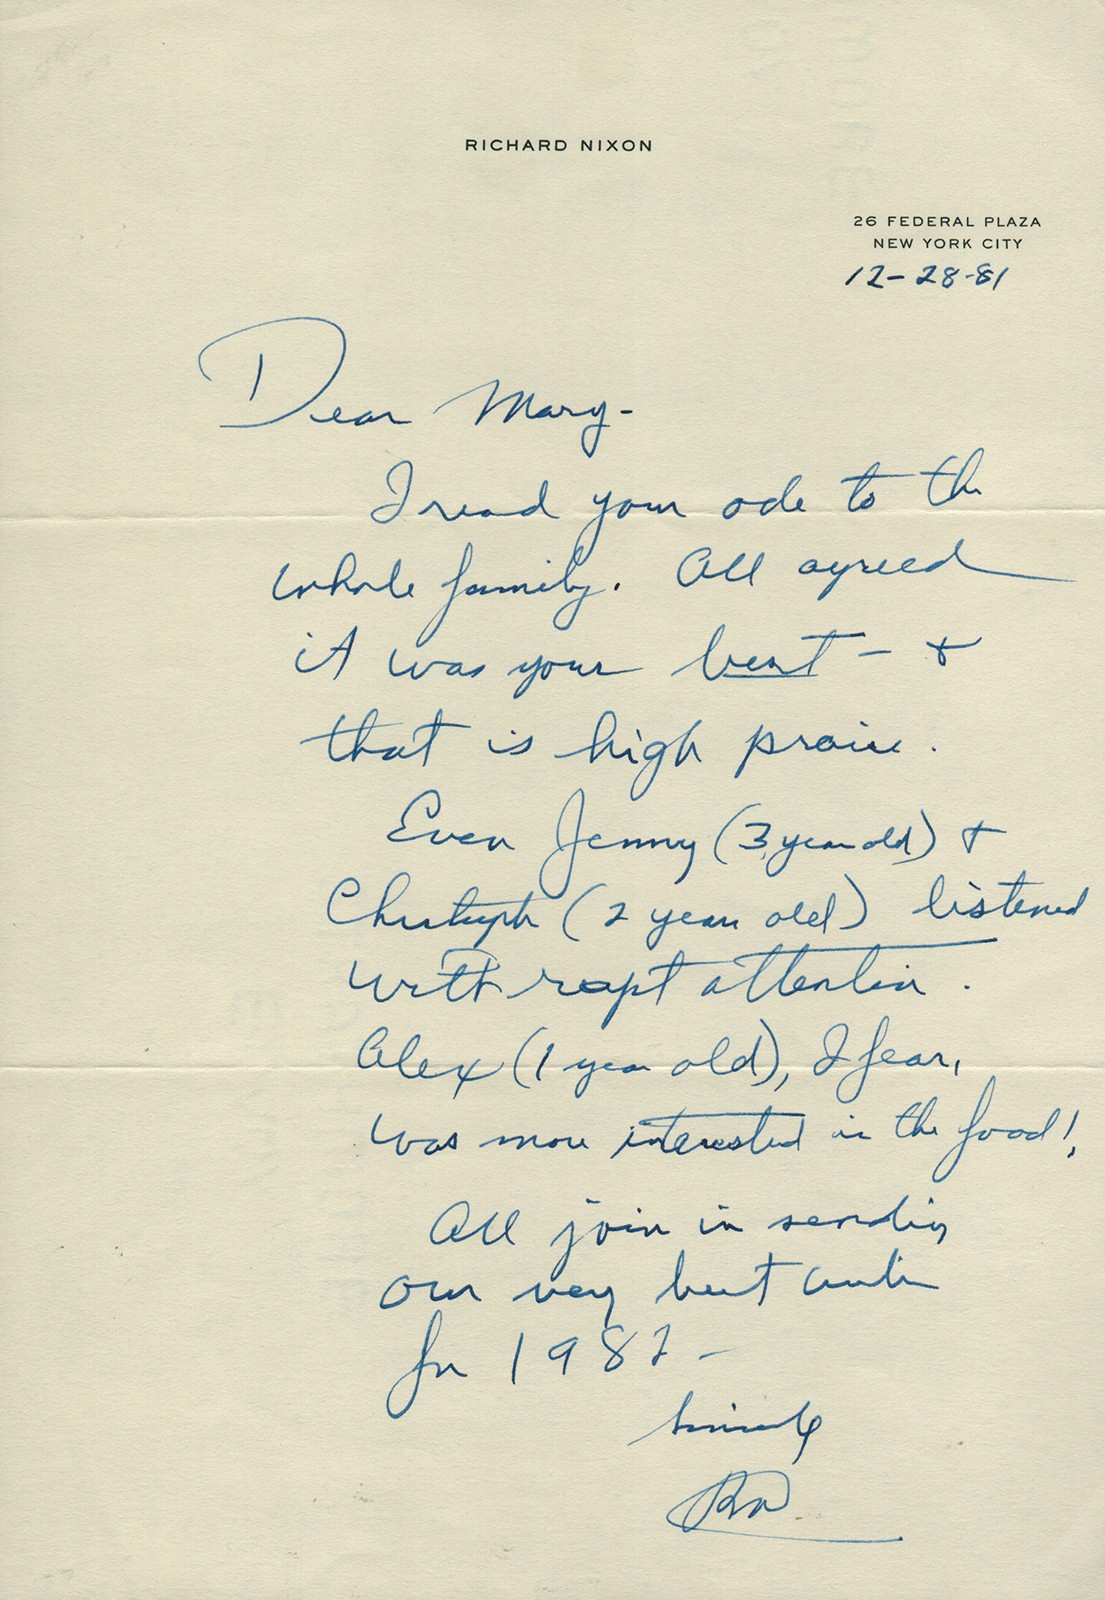 RICHARD NIXON
26 FEDERAL PLAZA
NEW YORK CITY
12-28-81
Dear Mary-
I read your ode to the
whole family. All agreed
it was your best - &
that is high praise.
Even Jenny (3 year old) &
Christoph (2 year old) listened
with rapt attention.
Alex (1 year old), I fear,
was more interested in the food!
All join in sending
our very best wishes
for 1982 -
Sincerely
RN